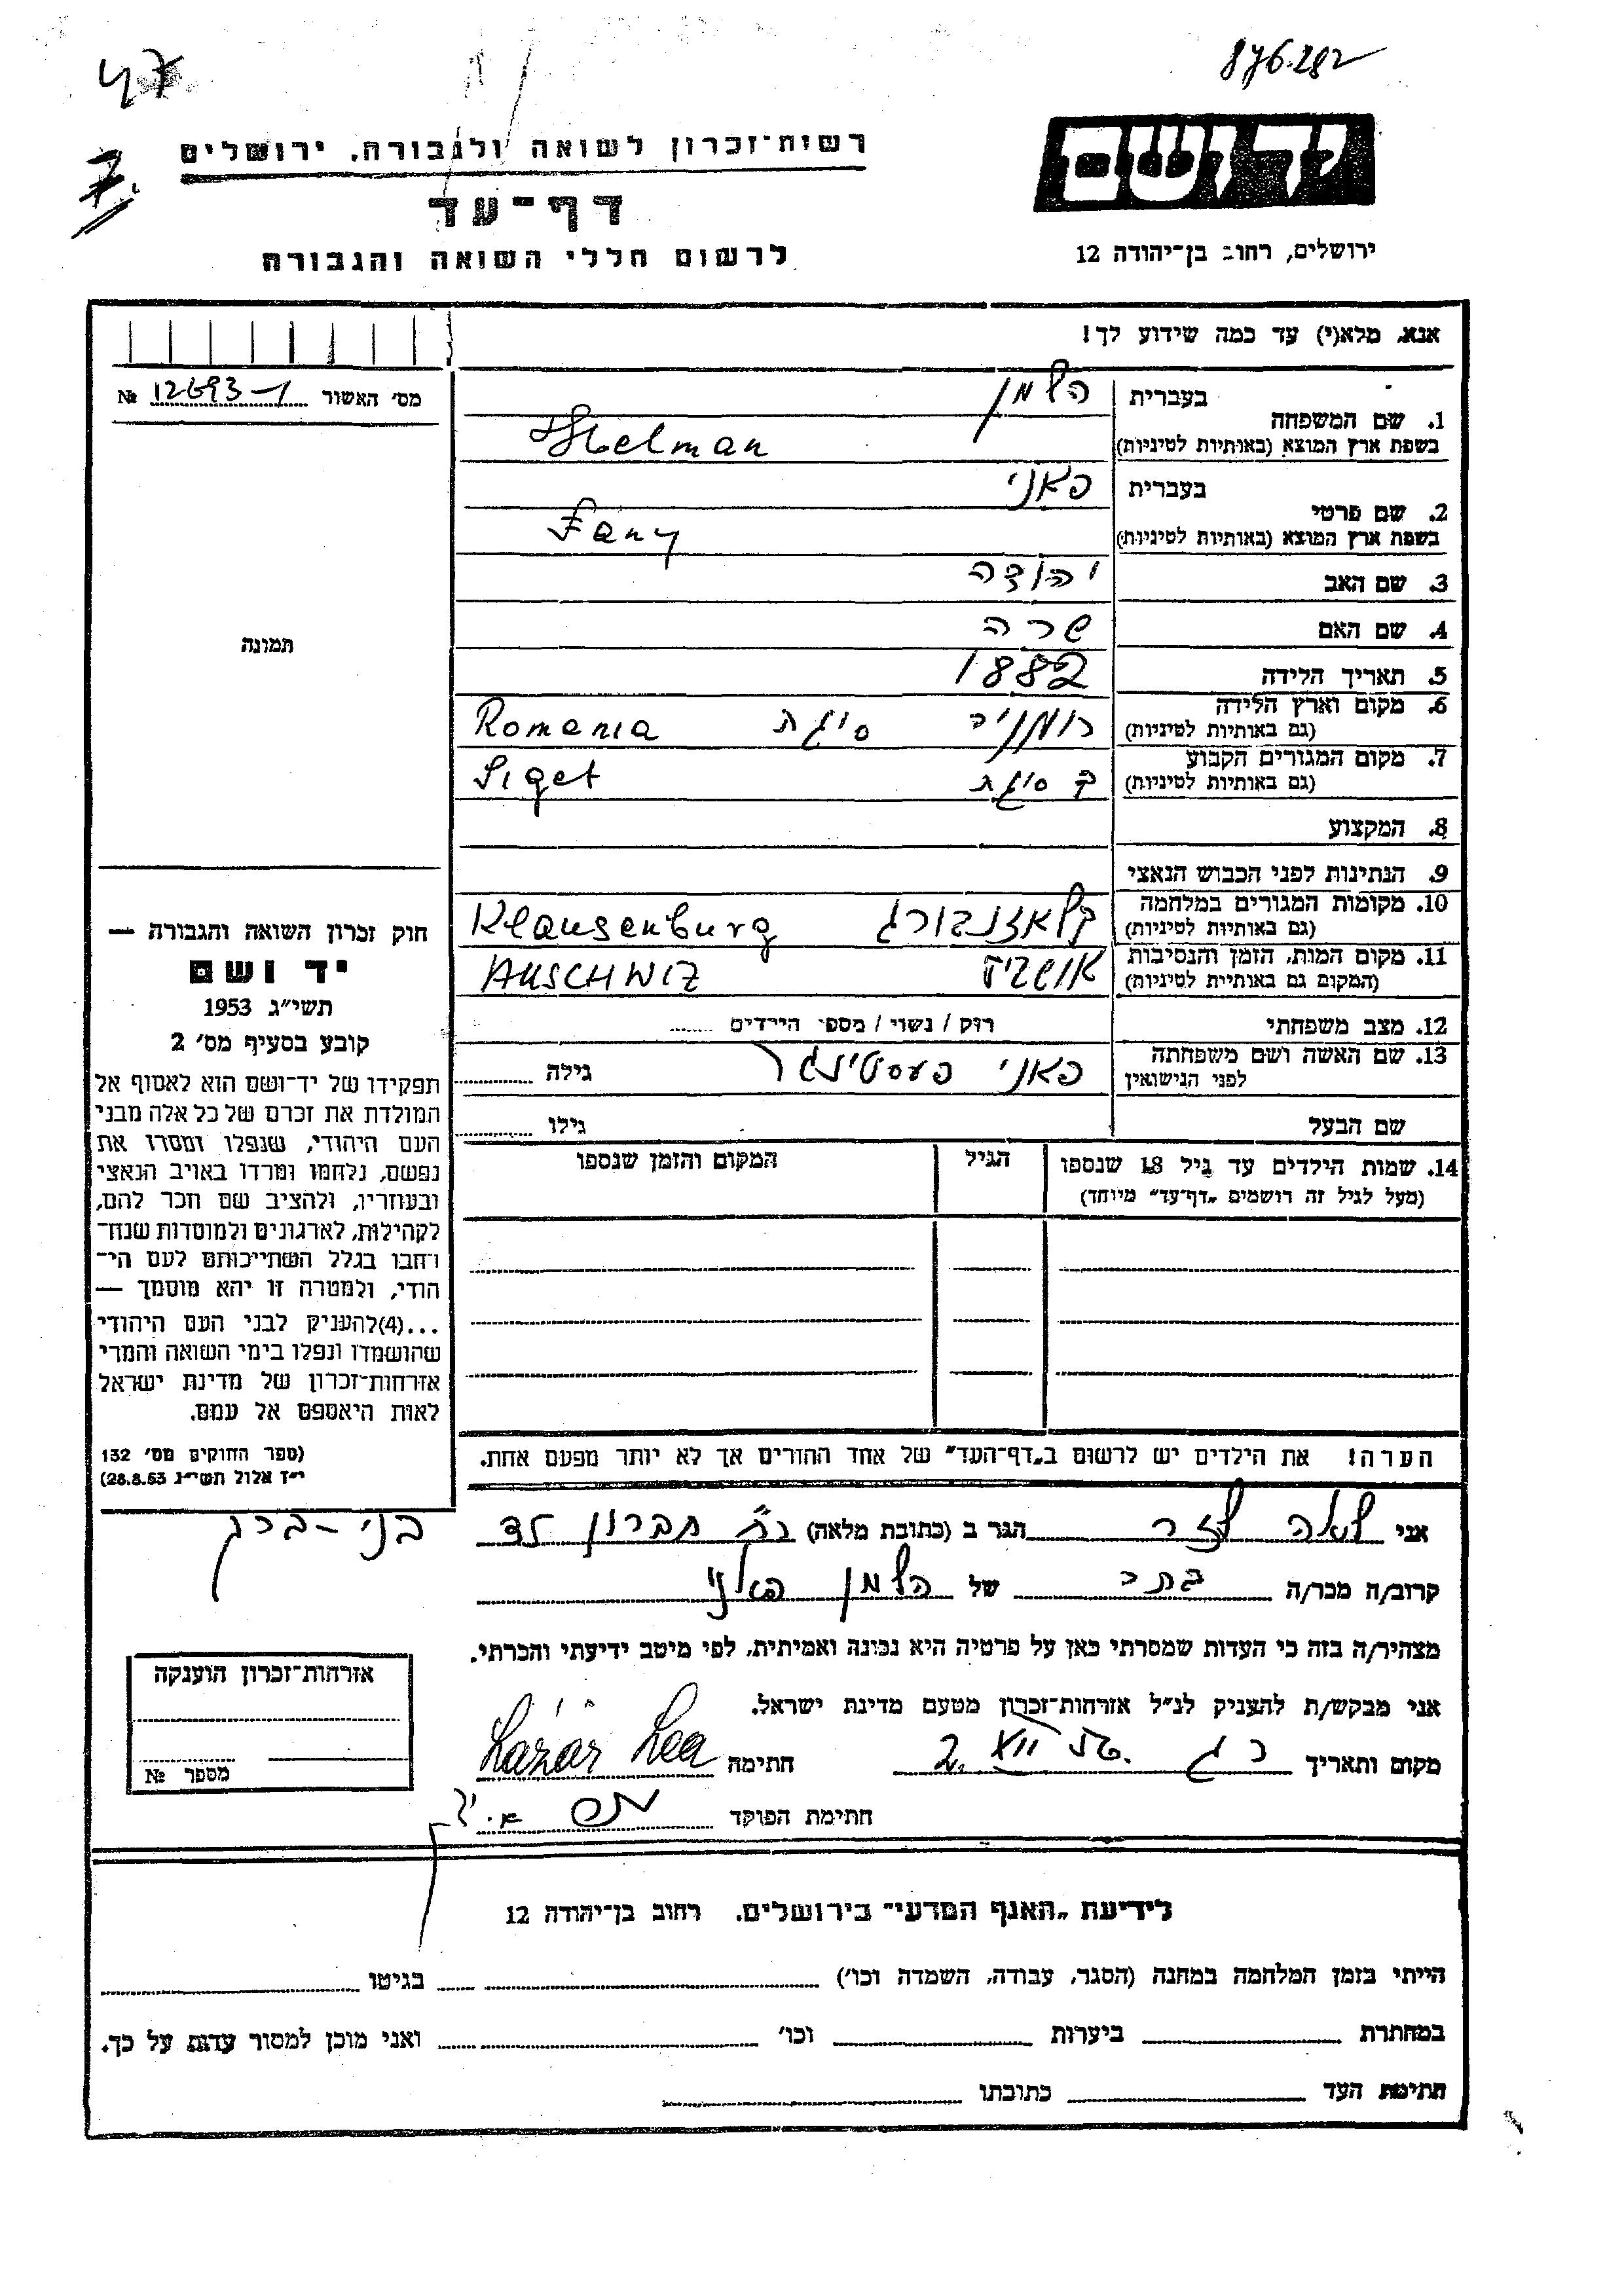 47
876.282
7.
יד ושם
רשות־זכרון לשואה ולגבורה. ירושלים
דף־עד
לרשום חללי השואה והגבורה
ירושלים, רחוב בן־יהודה 12
אנא, מלא(י) עד כמה שידוע לך!
מס׳ האשור № 12693-1
1. שם המשפחה בעברית הלמן
בשפת ארץ המוצא (באותיות לטיניות) Helman
2. שם פרטי בעברית פאני
בשפת ארץ המוצא (באותיות לטיניות) Fany
3. שם האב יהודה
4. שם האם שרה
5. תאריך הלידה 1882
6. מקום וארץ הלידה (גם באותיות לטיניות) רומניה סיגת Romania
7. מקום המגורים הקבוע (גם באותיות לטיניות) בסיגת Siget
8. המקצוע
9. הנתינות לפני הכבוש הנאצי
10. מקומות המגורים במלחמה (גם באותיות לטיניות) קלאוזנבורג Klausenburg
11. מקום המות, הזמן והנסיבות (המקום גם באותיות לטיניות) אושביץ AUSCHWIZ
12. מצב משפחתי רווק / נשוי / מספר הילדים
13. שם האשה ושם משפחתה לפני הנישואין פאני פעסטינגר גילה
שם הבעל גילו
14. שמות הילדים עד גיל 18 שנספו הגיל המקום והזמן שנספו
(מעל לגיל זה רושמים „דף־עד״ מיוחד)
הערה! את הילדים יש לרשום ב„דף־העד״ של אחד ההורים אך לא יותר מפעם אחת.
תמונה
חוק זכרון השואה והגבורה —
יד ושם
תשי״ג 1953
קובע בסעיף מס׳ 2
תפקידו של יד־ושם הוא לאסוף אל
המולדת את זכרם של כל אלה מבני
העם היהודי, שנפלו ומסרו את
נפשם, נלחמו ומרדו באויב הנאצי
ובעוזריו, ולהציב שם וזכר להם,
לקהילות, לארגונים ולמוסדות שנח־
רבו בגלל השתייכותם לעם הי־
הודי, ולמטרה זו יהא מוסמך —
...(4) להעניק לבני העם היהודי
שהושמדו ונפלו בימי השואה והמרי
אזרחות־זכרון של מדינת ישראל
לאות היאספם אל עמם.
(ספר החוקים מס׳ 132
י״ז אלול תשי״ג 28.8.53)
אני לאה לזר הגר ב (כתובת מלאה) רח׳ חברון בני-ברק
קרוב/ה מכר/ה בתה של הלמן פאני
מצהיר/ה בזה כי העדות שמסרתי כאן על פרטיה היא נכונה ואמיתית, לפי מיטב ידיעתי והכרתי.
אני מבקש/ת להעניק לנ״ל אזרחות־זכרון מטעם מדינת ישראל.
מקום ותאריך חתימה Lázár Lea
חתימת הפוקד
אזרחות־זכרון הוענקה
מספר №
לידיעת „האגף המדעי״ בירושלים. רחוב בן־יהודה 12
הייתי בזמן המלחמה במחנה (הסגר, עבודה, השמדה וכו׳) בגיטו
במחתרת ביערות וכו׳ ואני מוכן למסור עדות על כך.
חתימת העד כתובתו